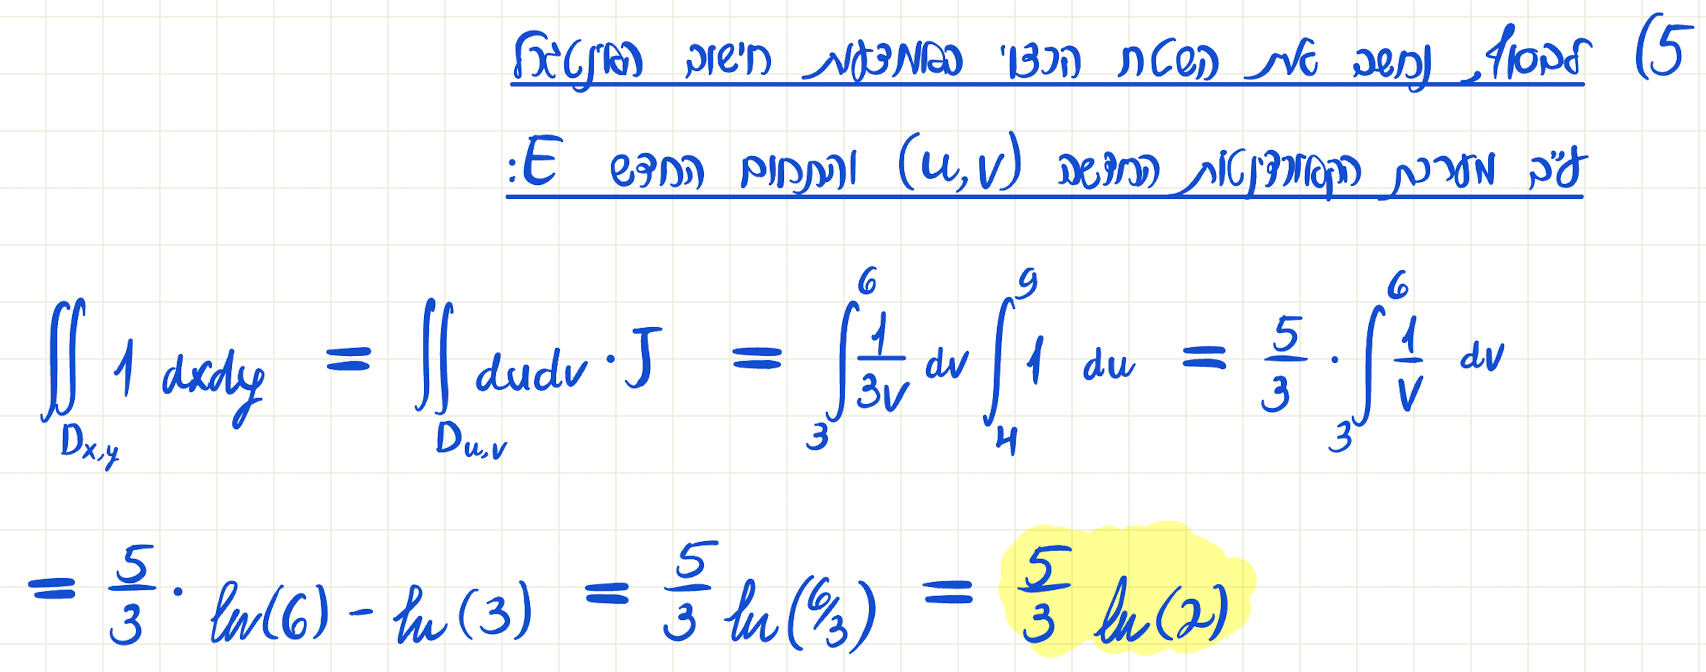 5) לבסוף, נחשב את השטח הרצוי באמצעות חישוב האינטגרל
ע"ב מערכת הקואורדינטות החדשה (u,v) והתחום החדש E:
∬_{D_{x,y}} 1 dxdy = ∬_{D_{u,v}} dudv · J = ∫_3^6 1/(3v) dv ∫_4^9 1 du = 5/3 · ∫_3^6 1/v dv
= 5/3 · ln(6) - ln(3) = 5/3 ln(6/3) = 5/3 ln(2)